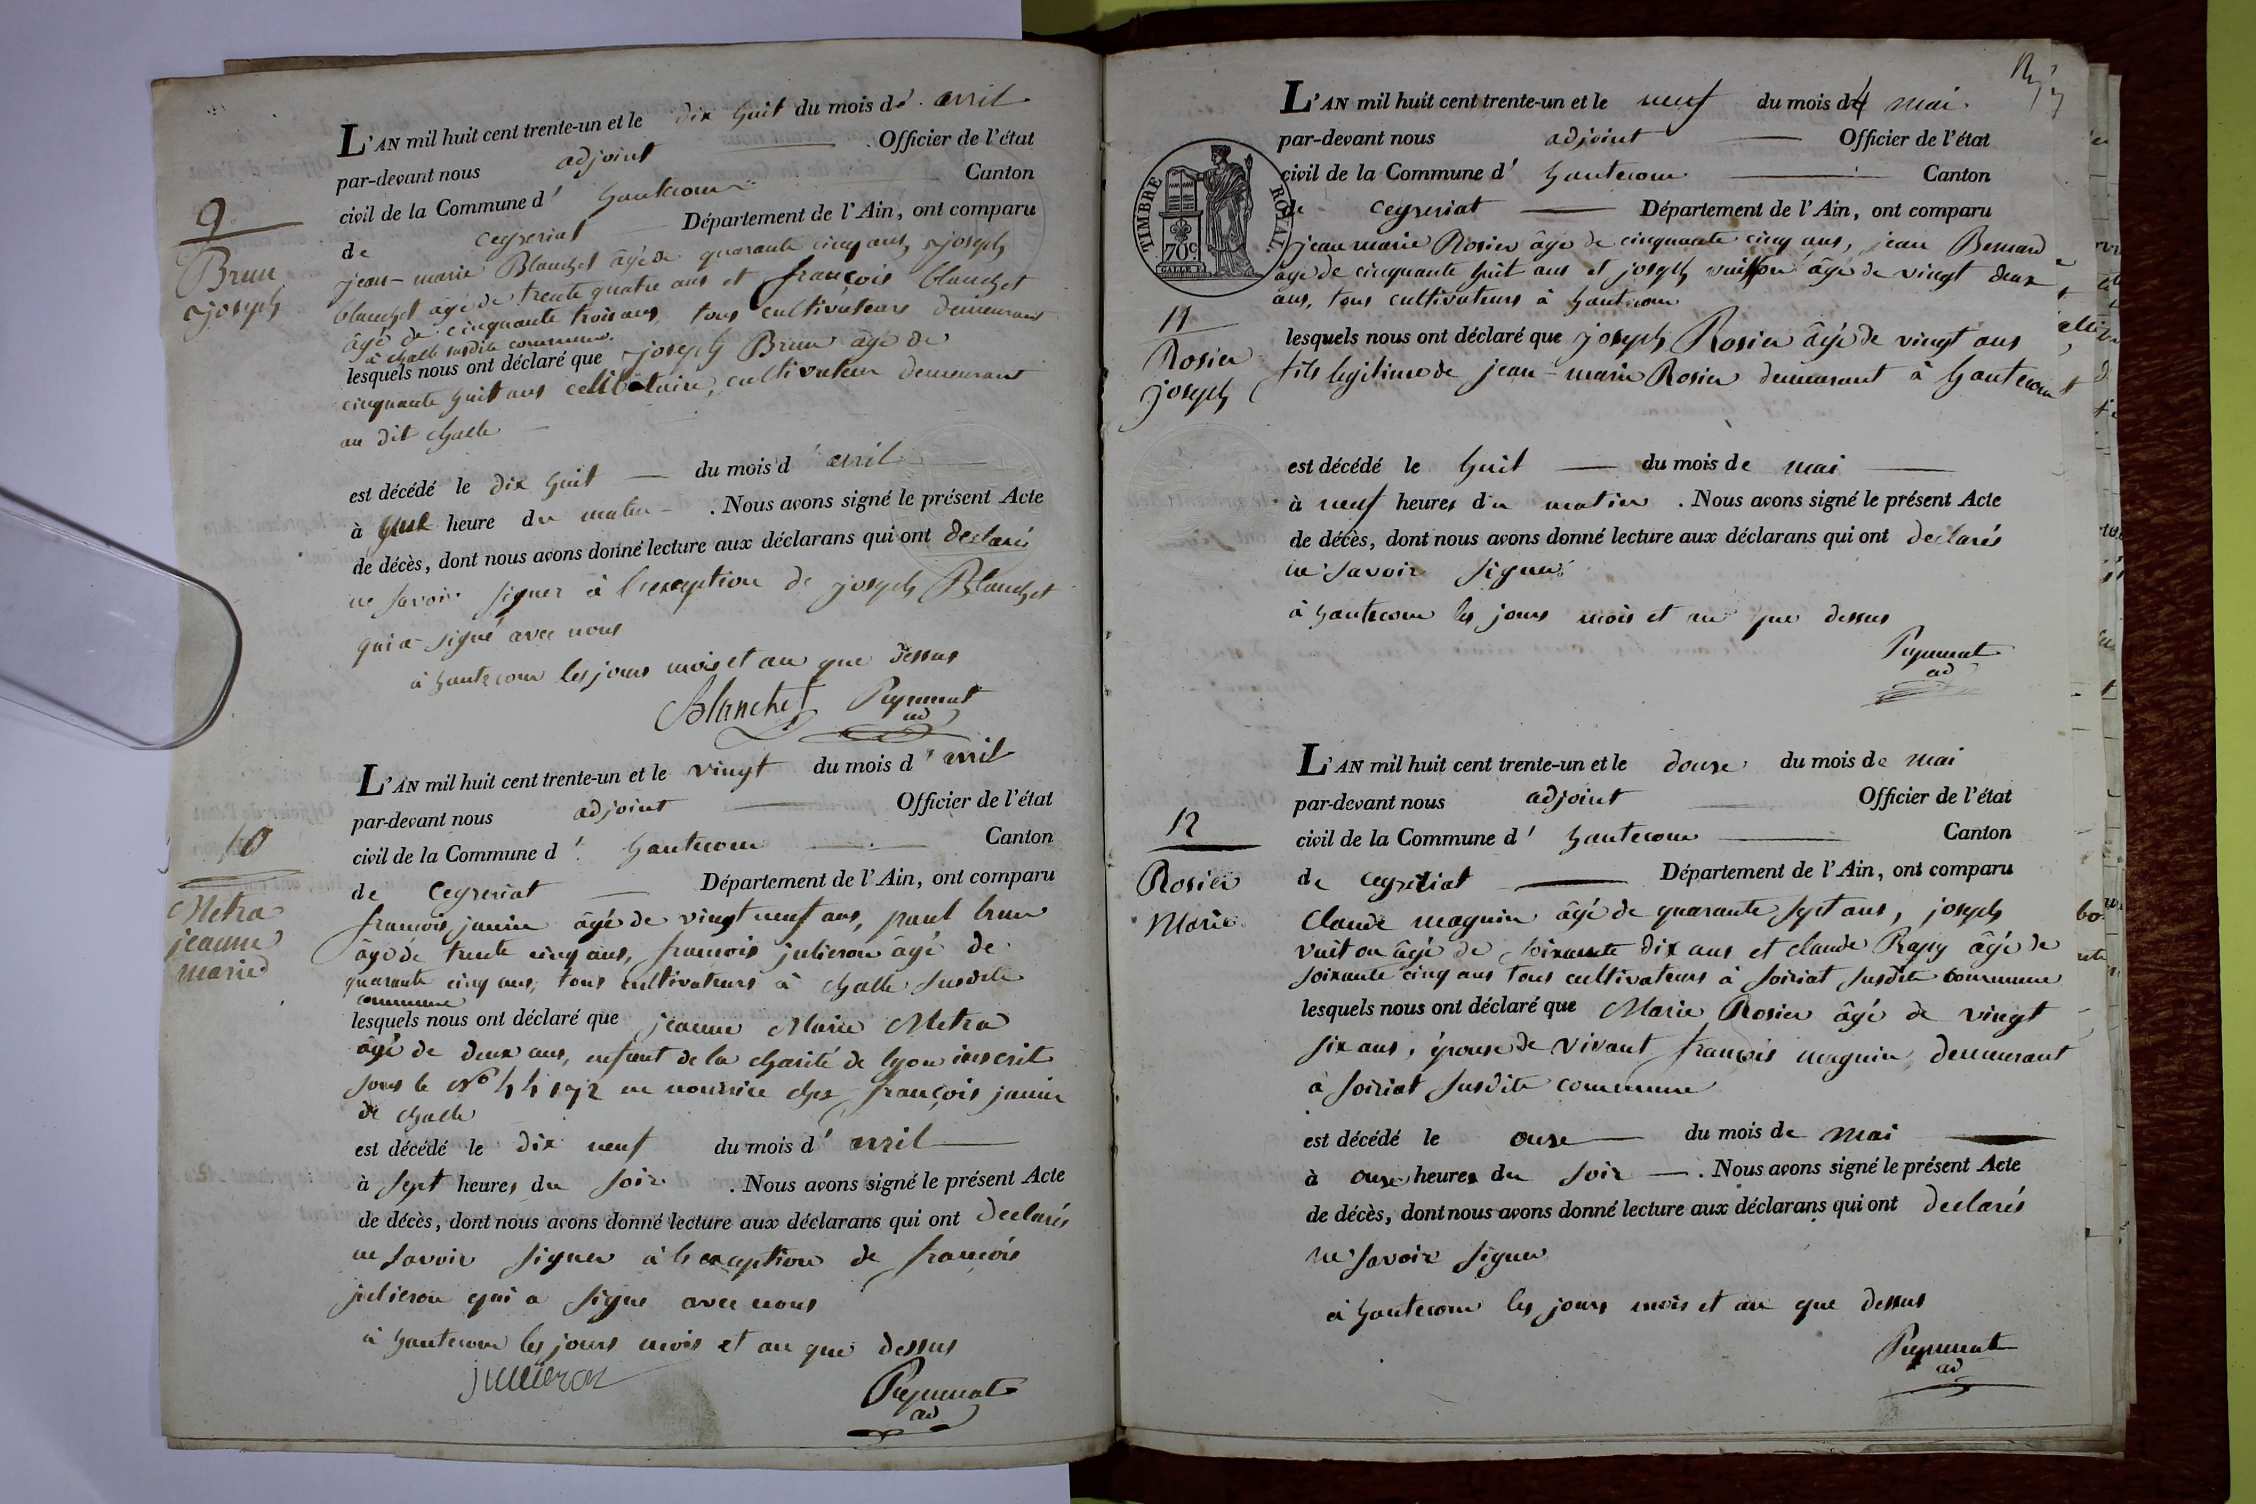 9
Brun
joseph
L'AN mil huit cent trente-un et le dix huit du mois d'avril
par-devant nous adjoint Officier de l'état
civil de la Commune d'hautecour Canton
de ceyzeriat Département de l'Ain, ont comparu
jean-marie Blanchet âgé de quarante cinq ans, joseph
blanchet âgé de trente quatre ans et françois blanchet
âgé de cinquante trois ans, tous cultivateurs demeurant
à challe susdite commune.
lesquels nous ont déclaré que joseph Brun âgé de
cinquante huit ans celibataire, cultivateur demeurant
au dit challe
est décédé le dix huit du mois d'avril
à heure du matin. Nous avons signé le présent Acte
de décès, dont nous avons donné lecture aux déclarans qui ont declarés
ne savoir signer à l'exception de joseph Blanchet
qui a signé avec nous
à hautecour les jours mois et an que dessus
Blanchet
ad
10
Metra
jeanne
marie
L'AN mil huit cent trente-un et le vingt du mois d'avril
par-devant nous adjoint Officier de l'état
civil de la Commune d'hautecour Canton
de Ceyzeriat Département de l'Ain, ont comparu
francois janin âgé de vingt neuf ans, paul brun
âgé de trente cinq ans, francois julieron âgé de
quarante cinq ans, tous cultivateurs à challe susdite
commune
lesquels nous ont déclaré que jeanne Marie Metra
âgé de deux ans, enfant de la charité de lyon inscrit
sous le No en nourrice chez françois janin
de challe
est décédé le dix neuf du mois d'avril
à sept heures du soir. Nous avons signé le présent Acte
de décès, dont nous avons donné lecture aux déclarans qui ont declarés
ne savoir signer à l'exception de francois
julieron qui a signe avec nous
à hautecour les jours mois et an que dessus
julieron
ad
L'AN mil huit cent trente-un et le neuf du mois de mai
par-devant nous adjoint Officier de l'état
civil de la Commune d'hautecour Canton
de ceyzeriat Département de l'Ain, ont comparu
TIMBRE ROYAL
70c
jean marie Rosier âgé de cinquante cinq ans, jean Bernard
âgé de cinquante huit ans et joseph vuiton âgé de vingt deux
ans, tous cultivateurs à hautecour
11
Rosier
joseph
lesquels nous ont déclaré que joseph Rosier âgé de vingt ans
fils legitime de jean-marie Rosier demeurant à hautecour
est décédé le huit du mois de mai
à neuf heures du matin. Nous avons signé le présent Acte
de décès, dont nous avons donné lecture aux déclarans qui ont declarés
ne savoir signer
à hautecour les jours mois et an que dessus
ad
12
Rosier
Marie
L'AN mil huit cent trente-un et le douze du mois de mai
par-devant nous adjoint Officier de l'état
civil de la Commune d'hautecour Canton
de ceyzeriat Département de l'Ain, ont comparu
Claude magnin âgé de quarante sept ans, joseph
vuiton âgé de soixante dix ans et claude Rapy âgé de
soixante cinq ans tous cultivateurs à soiriat susdite commune
lesquels nous ont déclaré que Marie Rosier âgé de vingt
six ans, épouse de vivant françois magnin, demeurant
à soiriat susdite commune
est décédé le onze du mois de mai
à onze heures du soir. Nous avons signé le présent Acte
de décès, dont nous avons donné lecture aux déclarans qui ont declarés
ne savoir signer
à hautecour les jours mois et an que dessus
ad